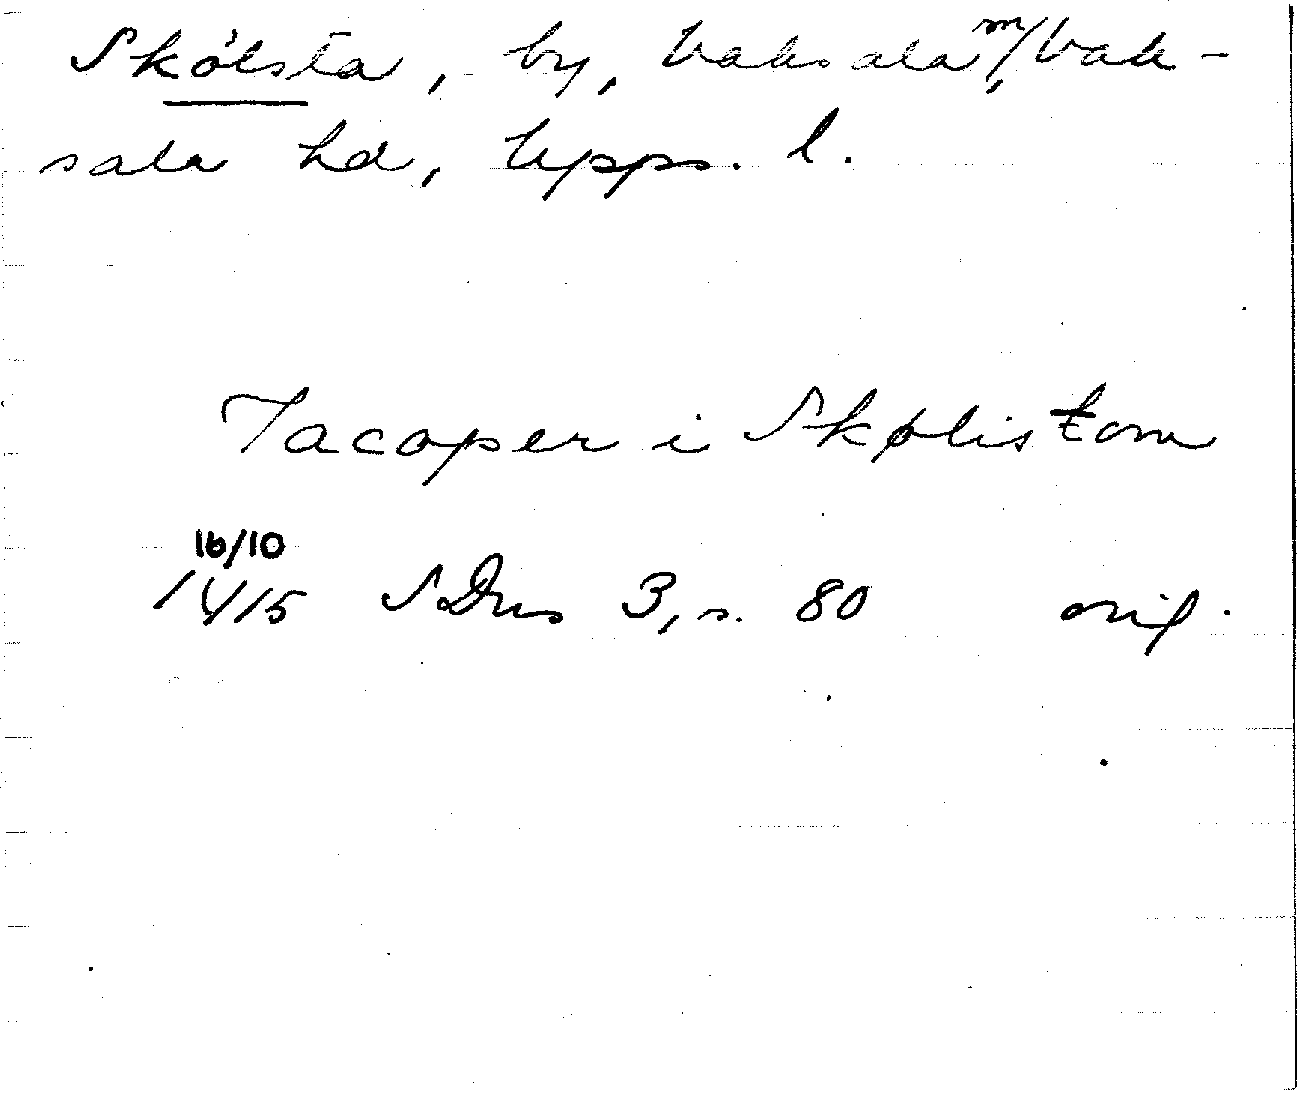 Skölsta, by, Vaksala sn, Vak-
sala hd, Upps. l.
Jacoper i Skølistom
16/10
1415 SDns 3, s. 80 orig.